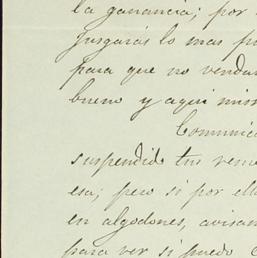 la ganancia; por
jusgarás lo mas pr
para que no vendas
bueno y aqui mis
Comunic
suspendió tus reme
esa; pero si por ell
en algodones, avisan
para ver si puedo